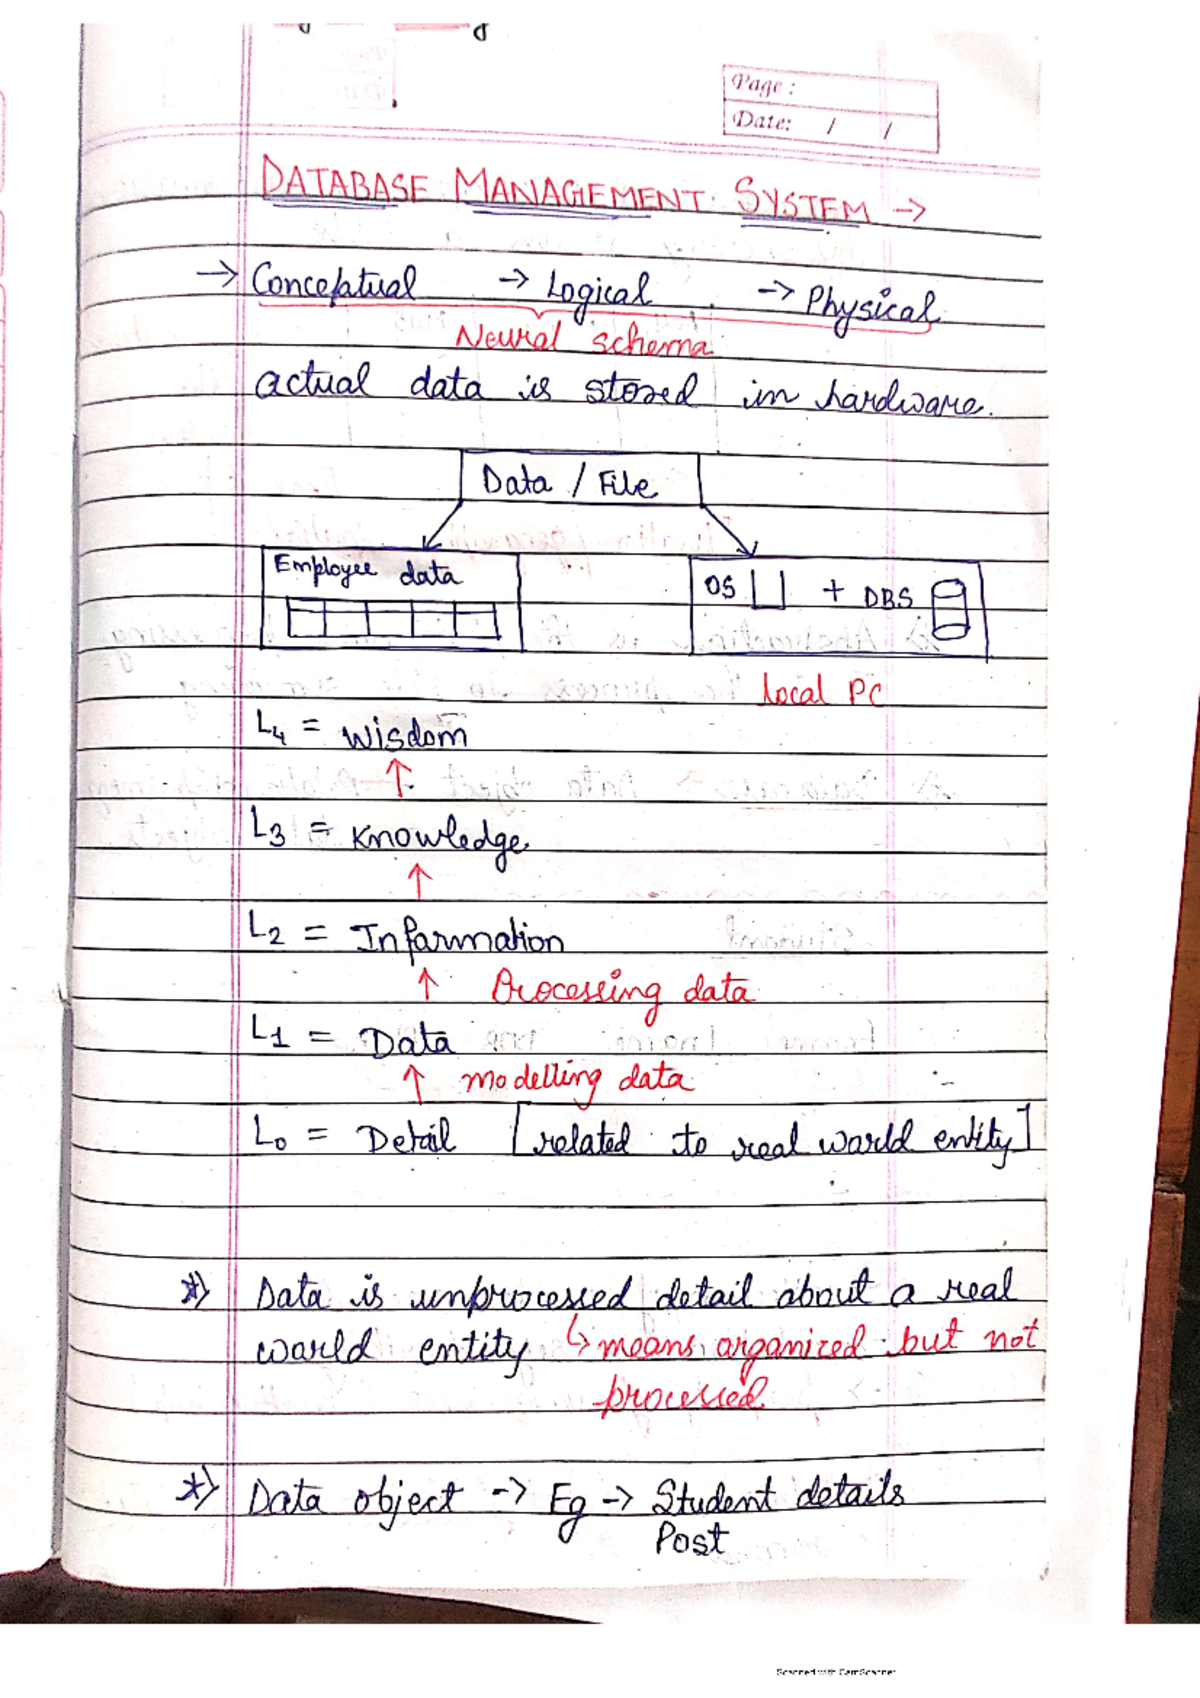 Page :
Date: / /
DATABASE MANAGEMENT SYSTEM →
→ Conceptual → Logical → Physical
Neural schema
actual data is stored in hardware.
Data / File
Employee data
OS + DBS
local PC
L4 = Wisdom
↑
L3 = Knowledge
↑
L2 = Information
↑ Processing data
L1 = Data
↑ modelling data
L0 = Detail [related to real world entity]
*) Data is unprocessed detail about a real
world entity ↳ means organized but not
processed
*) Data object → Eg → Student details
Post
Scanned with CamScanner